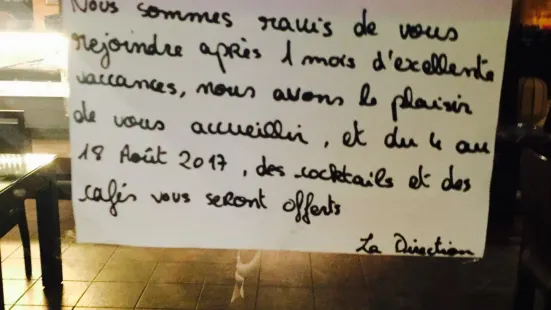 Nous sommes ravis de vous
rejoindre après 1 mois d'excellente
vaccances, nous avons le plaisir
de vous accueillir, et du 4 au
18 Août 2017, des cocktails et des
cafés vous seront offerts
La Direction